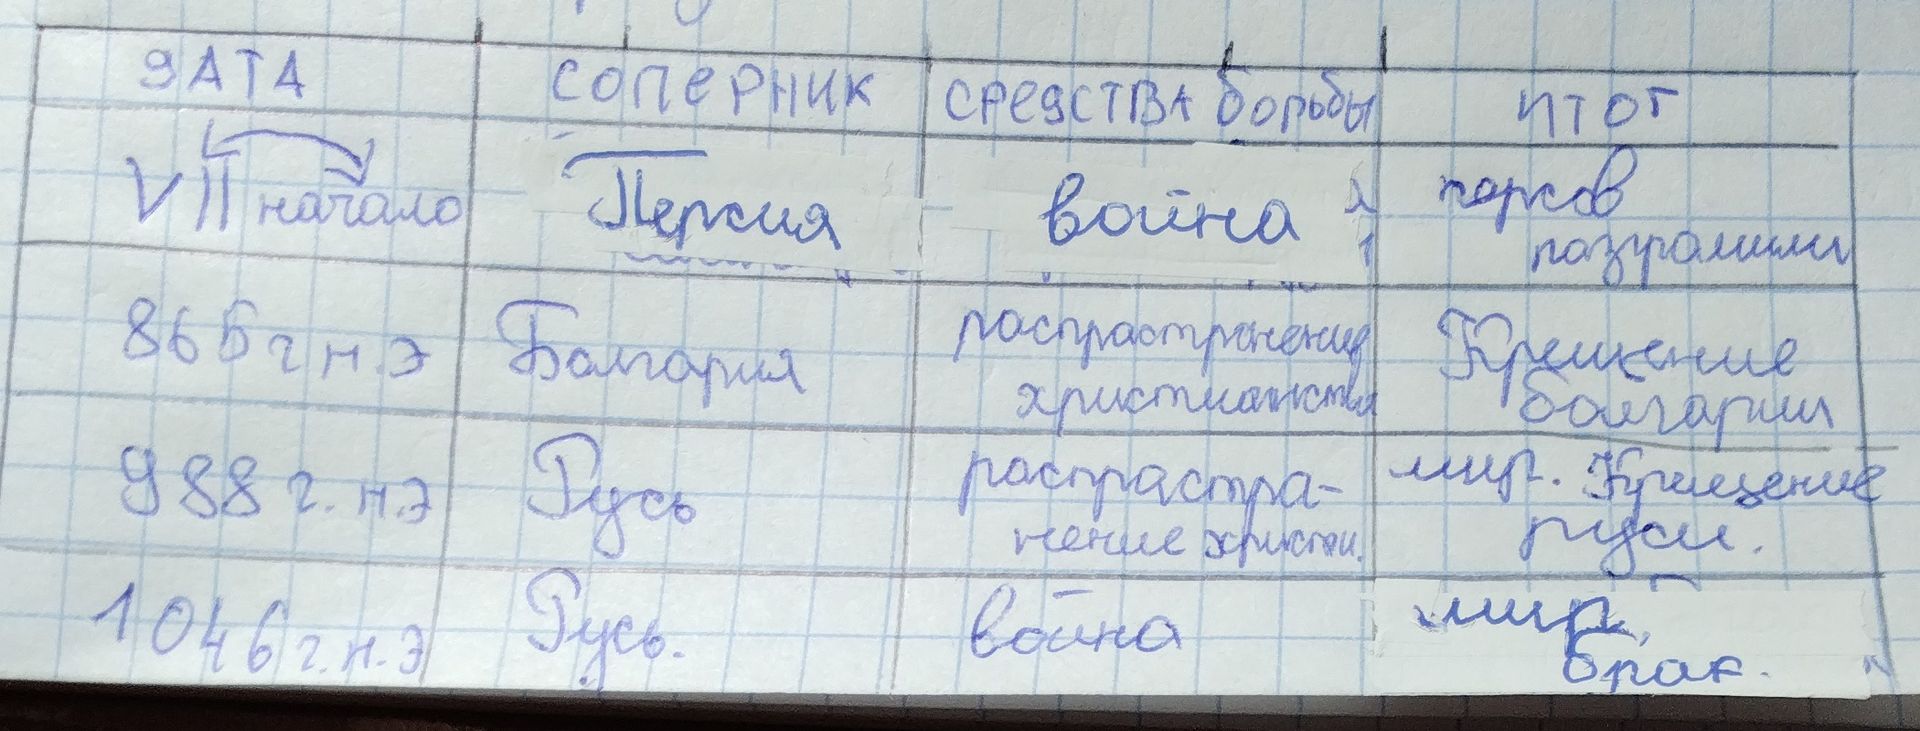 ДАТА СОПЕРНИК СРЕДСТВА борьбы ИТОГ
VII начало Персия война персов
разгромили
865 г н.э Болгария распрастронение Крещение
христианства болгарии
988 г. н.э Русь распрастра- мир. Крещение
нение христи. руси.
1046 г. н.э Русь. война мир,
брак.